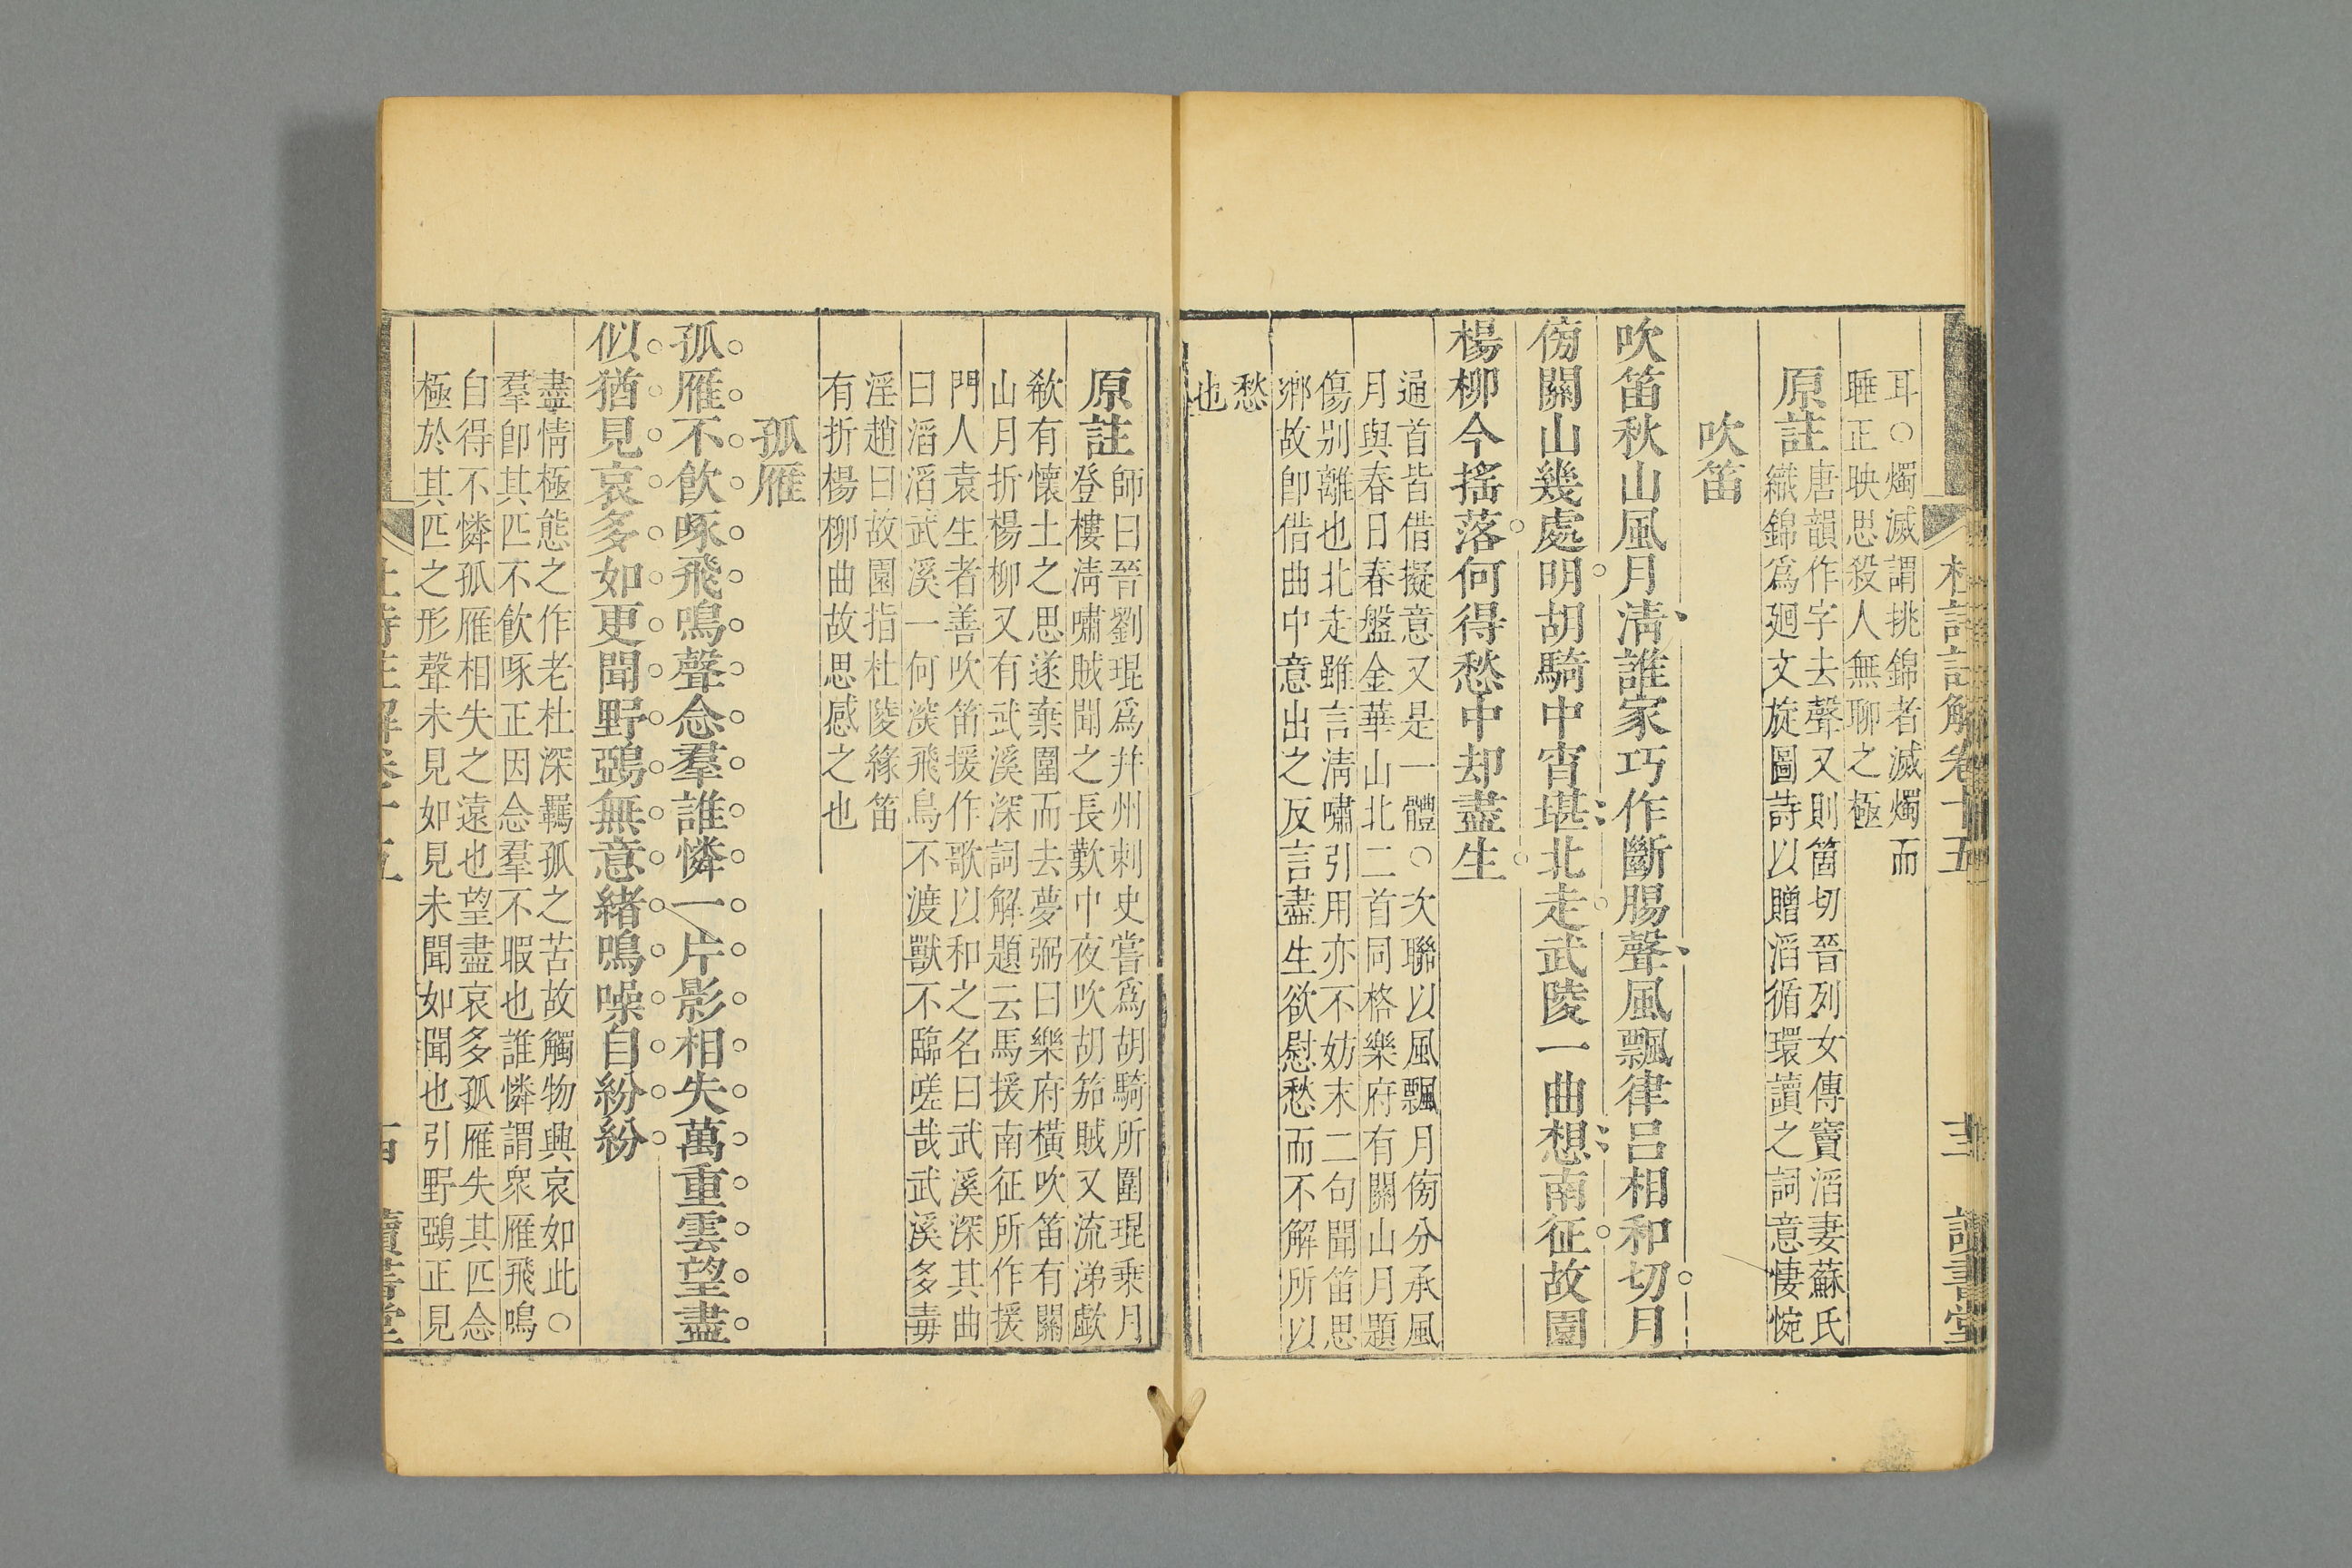 杜詩註解卷十五
讀書堂
耳○燭滅謂挑錦者滅燭而
睡正映思殺人無聊之極
原註
唐韻作字去聲又則箇切晉列女傳竇滔妻蘇氏
織錦爲廻文旋圖詩以贈滔循環讀之詞意悽惋
吹笛
吹笛秋山風月淸誰家巧作斷腸聲風飄律呂相和切月
傍關山幾處明胡騎中宵堪北走武陵一曲想南征故園
楊柳今搖落何得愁中却盡生
通首皆借擬意又是一體○次聯以風飄月傍分承風
月與春日春盤金華山北二首同格樂府有關山月題
傷别離也北走雖言淸嘯引用亦不妨末二句聞笛思
鄉故卽借曲中意出之反言盡生欲慰愁而不解所以
愁
也
原註
師曰晉劉琨爲幷州刺史嘗爲胡騎所圍琨乗月
登樓淸嘯賊聞之長歎中夜吹胡笳賊又流涕歔
欷有懷土之思遂棄圍而去夢弼曰樂府橫吹笛有關
山月折楊柳又有武溪深詞解題云馬援南征所作援
門人袁生者善吹笛援作歌以和之名曰武溪深其曲
曰滔滔武溪一何淡飛鳥不渡獸不臨嗟哉武溪多毒
淫趙曰故園指杜陵緣笛
有折楊柳曲故思感之也
孤雁
孤雁不飮啄飛鳴聲念羣誰憐一片影相失萬重雲望盡
似猶見哀多如更聞野鵶無意緒鳴噪自紛紛
盡情極態之作老杜深羈孤之苦故觸物興哀如此○
羣卽其匹不飮啄正因念羣不暇也誰憐謂衆雁飛鳴
自得不憐孤雁相失之遠也望盡哀多孤雁失其匹念
極於其匹之形聲未見如見未聞如聞也引野鵶正見